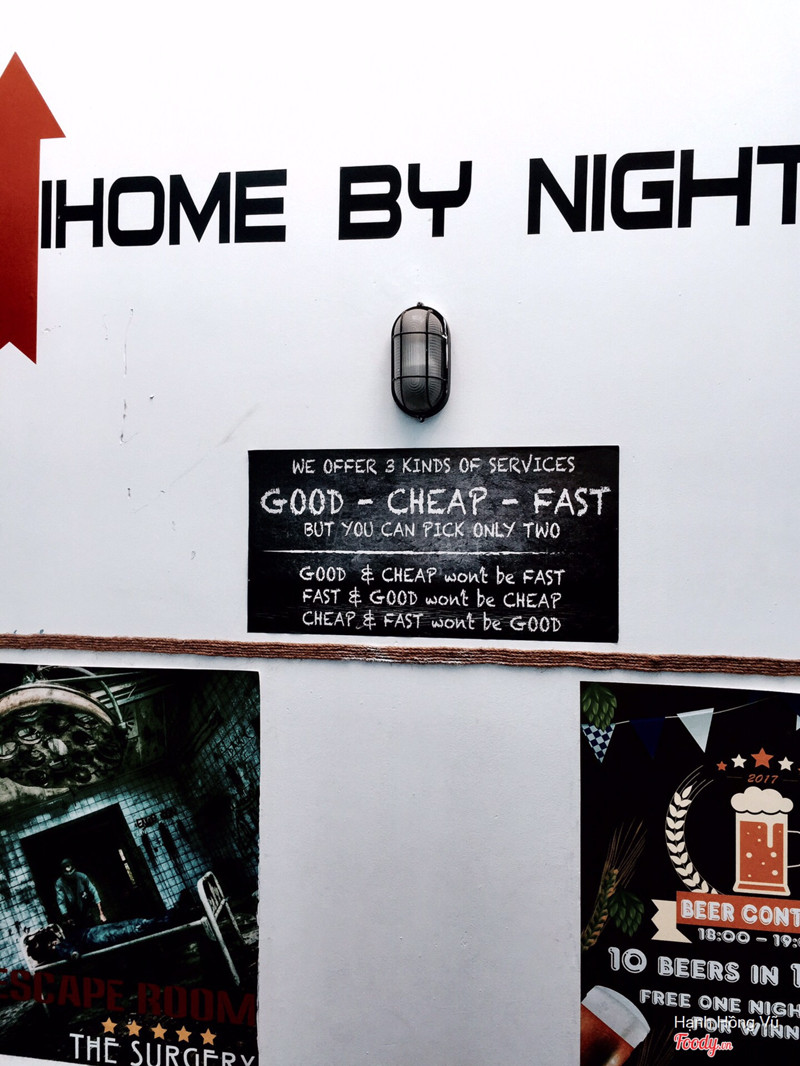 IHOME BY NIGHT
WE OFFER 3 KINDS OF SERVICES
GOOD - CHEAP - FAST
BUT YOU CAN PICK ONLY TWO
GOOD & CHEAP won't be FAST
FAST & GOOD won't be CHEAP
CHEAP & FAST won't be GOOD
ESCAPE ROOM
THE SURGERY
2017
BEER CONT
18:00 - 19:
10 BEERS IN 1
FREE ONE NIGH
FOR WINN
Hạnh Hồng Vũ
Foody.vn